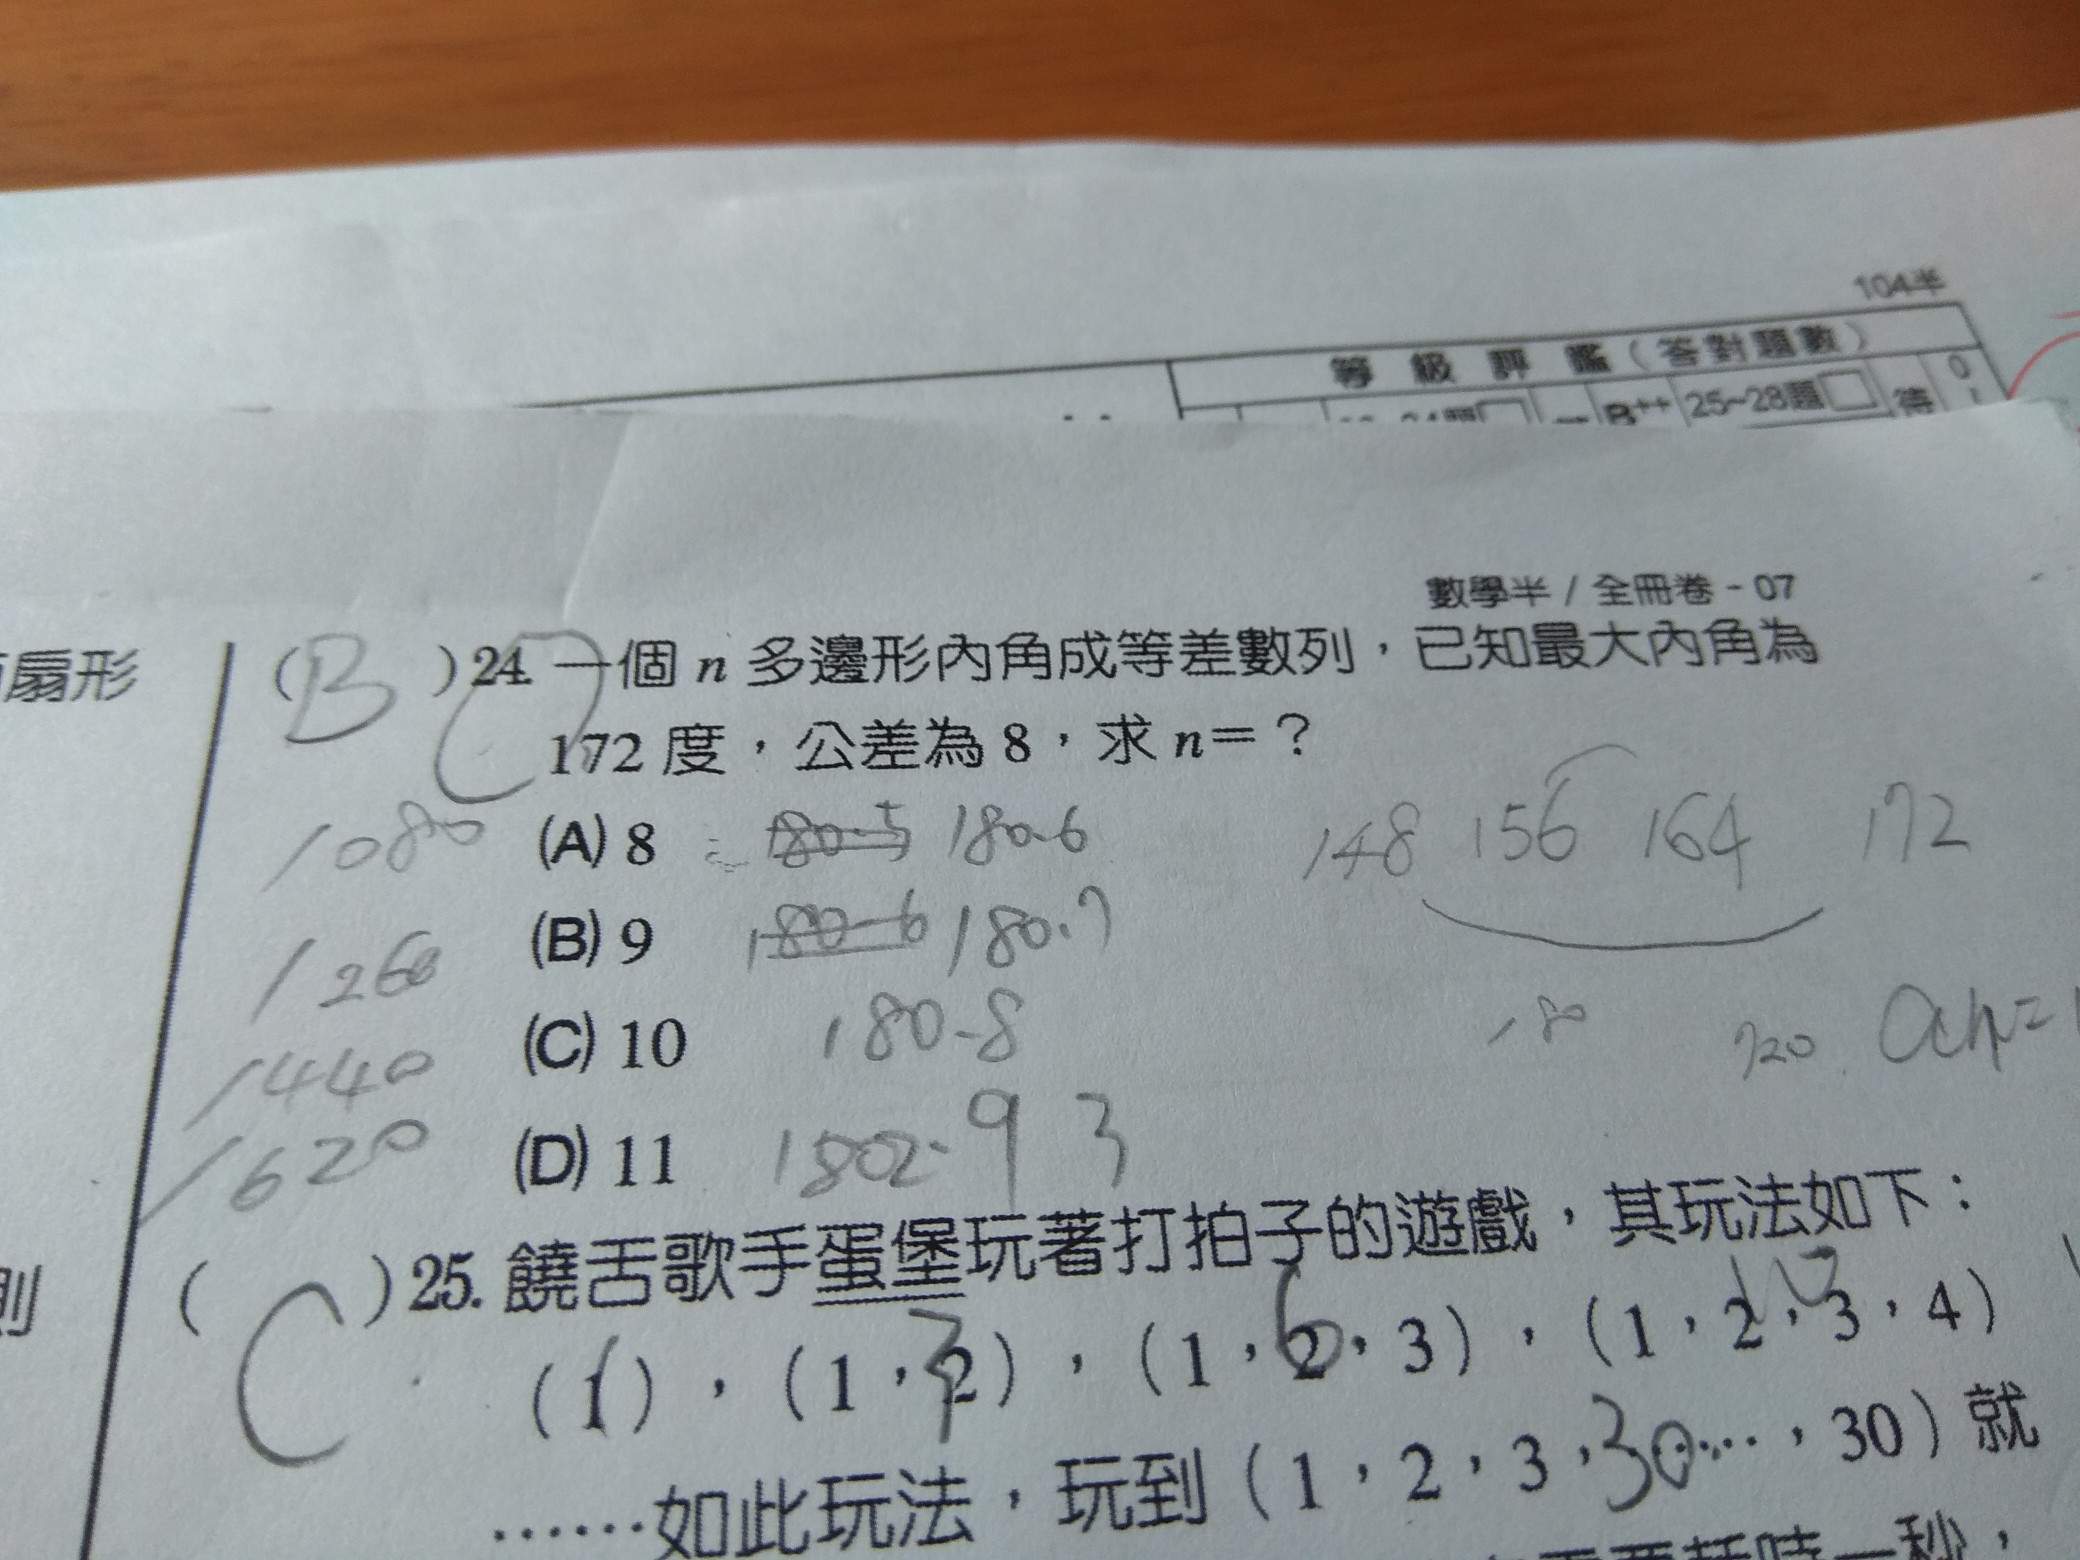 104半
等級評鑑（答對題數）
B++ 25~28題 待 0
數學半 / 全冊卷 - 07
扇形
( B ) 24. 一個 n 多邊形內角成等差數列，已知最大內角為
172 度，公差為 8，求 n＝？
1080 (A) 8 180·6 148 156 164 172
1260 (B) 9 180·7
1440 (C) 10 180-8 180 720
1620 (D) 11 9 3
則 ( C ) 25. 饒舌歌手蛋堡玩著打拍子的遊戲，其玩法如下：
(1)，(1，2)，(1，2，3)，(1，2，3，4)
……如此玩法，玩到 (1，2，3，……，30) 就